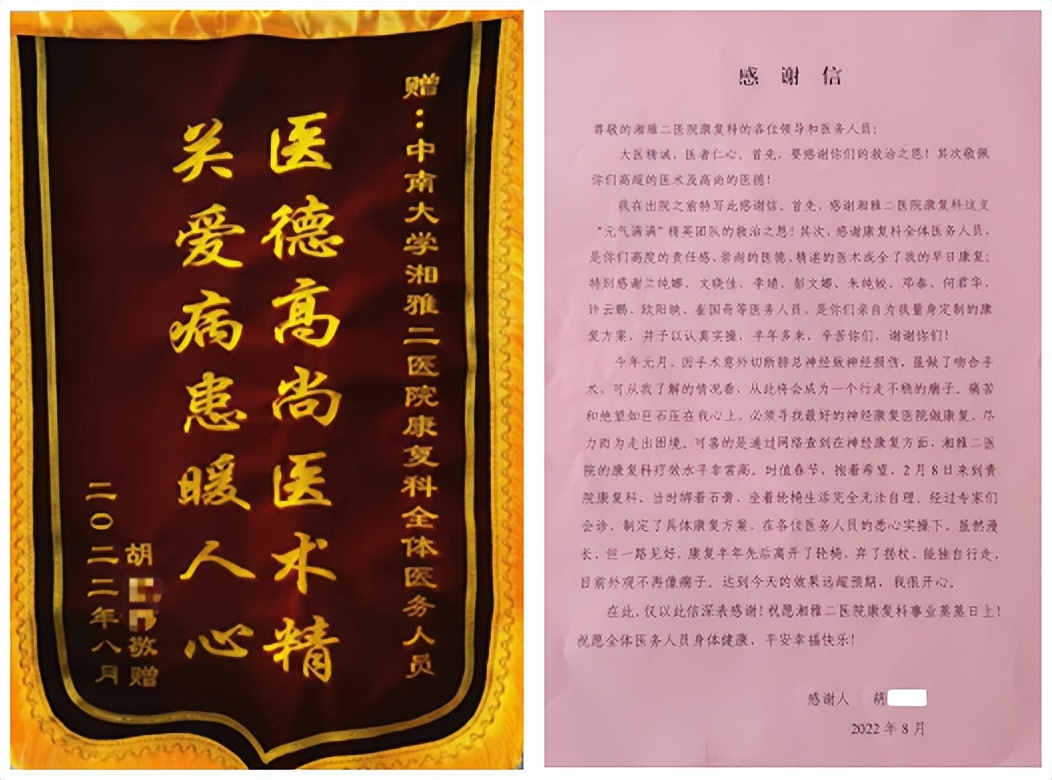 赠：中南大学湘雅二医院康复科全体医务人员
医德高尚医术精
关爱病患暖人心
胡
敬赠
二〇二二年八月
感谢信
尊敬的湘雅二医院康复科的各位领导和医务人员：
大医精诚，医者仁心。首先，要感谢你们的救治之恩！其次敬佩
你们高超的医术及高尚的医德！
我在出院之前特写此感谢信。首先，感谢湘雅二医院康复科这支
“元气满满”精英团队的救治之恩！其次，感谢康复科全体医务人员，
是你们高度的责任感、崇尚的医德、精湛的医术成全了我的早日康复；
特别感谢兰纯娜、文晓佳、李婧、彭文娜、朱纯姣、邓泰、何君华、
许云鹏、欧阳映、崔国奇等医务人员，是你们亲自为我量身定制的康
复方案，并予以认真实操，半年多来，辛苦你们，谢谢你们！
今年元月，因手术意外切断腓总神经致神经损伤，虽做了吻合手
术，可从我了解的情况看，从此将会成为一个行走不稳的瘸子。痛苦
和绝望如巨石压在我心上，必须寻我最好的神经康复医院做康复，尽
力而为走出困境。可喜的是通过网络查到在神经康复方面，湘雅二医
院的康复科疗效水平非常高。时值春节，抱着希望，2月8日来到贵
院康复科，当时绑着石膏、坐着轮椅生活完全无法自理。经过专家们
会诊，制定了具体康复方案，在各位医务人员的悉心实操下，虽然漫
长，但一路见好，康复半年先后离开了轮椅，弃了拐杖，能独自行走，
目前外观不再像瘸子。达到今天的效果远超预期，我很开心。
在此，仅以此信深表感谢！祝愿湘雅二医院康复科事业蒸蒸日上！
祝愿全体医务人员身体健康，平安幸福快乐！
感谢人 胡
2022年8月